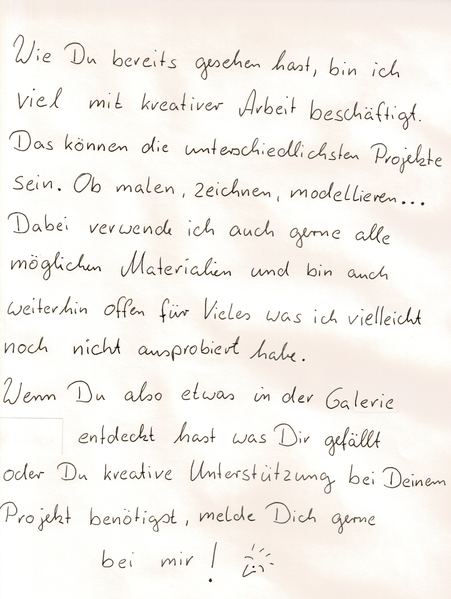 Wie Du bereits gesehen hast, bin ich
viel mit kreativer Arbeit beschäftigt.
Das können die unterschiedlichsten Projekte
sein. Ob malen, zeichnen, modellieren...
Dabei verwende ich auch gerne alle
möglichen Materialien und bin auch
weiterhin offen für Vieles was ich vielleicht
noch nicht ausprobiert habe.
Wenn Du also etwas in der Galerie
entdeckt hast was Dir gefällt
oder Du kreative Unterstützung bei Deinem
Projekt benötigst, melde Dich gerne
bei mir!